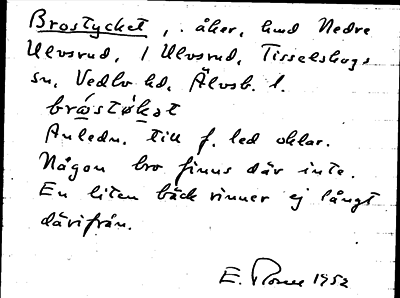 Brostycket, åker, hmd Nedre
Ulvsrud, / Ulvsrud, Tisselskogs
sn, Vedbo hd, Älvsb. l.
Anledn. till f. led oklar.
Någon bro finns där inte.
En liten bäck rinner ej långt
därifrån.
E. 1952